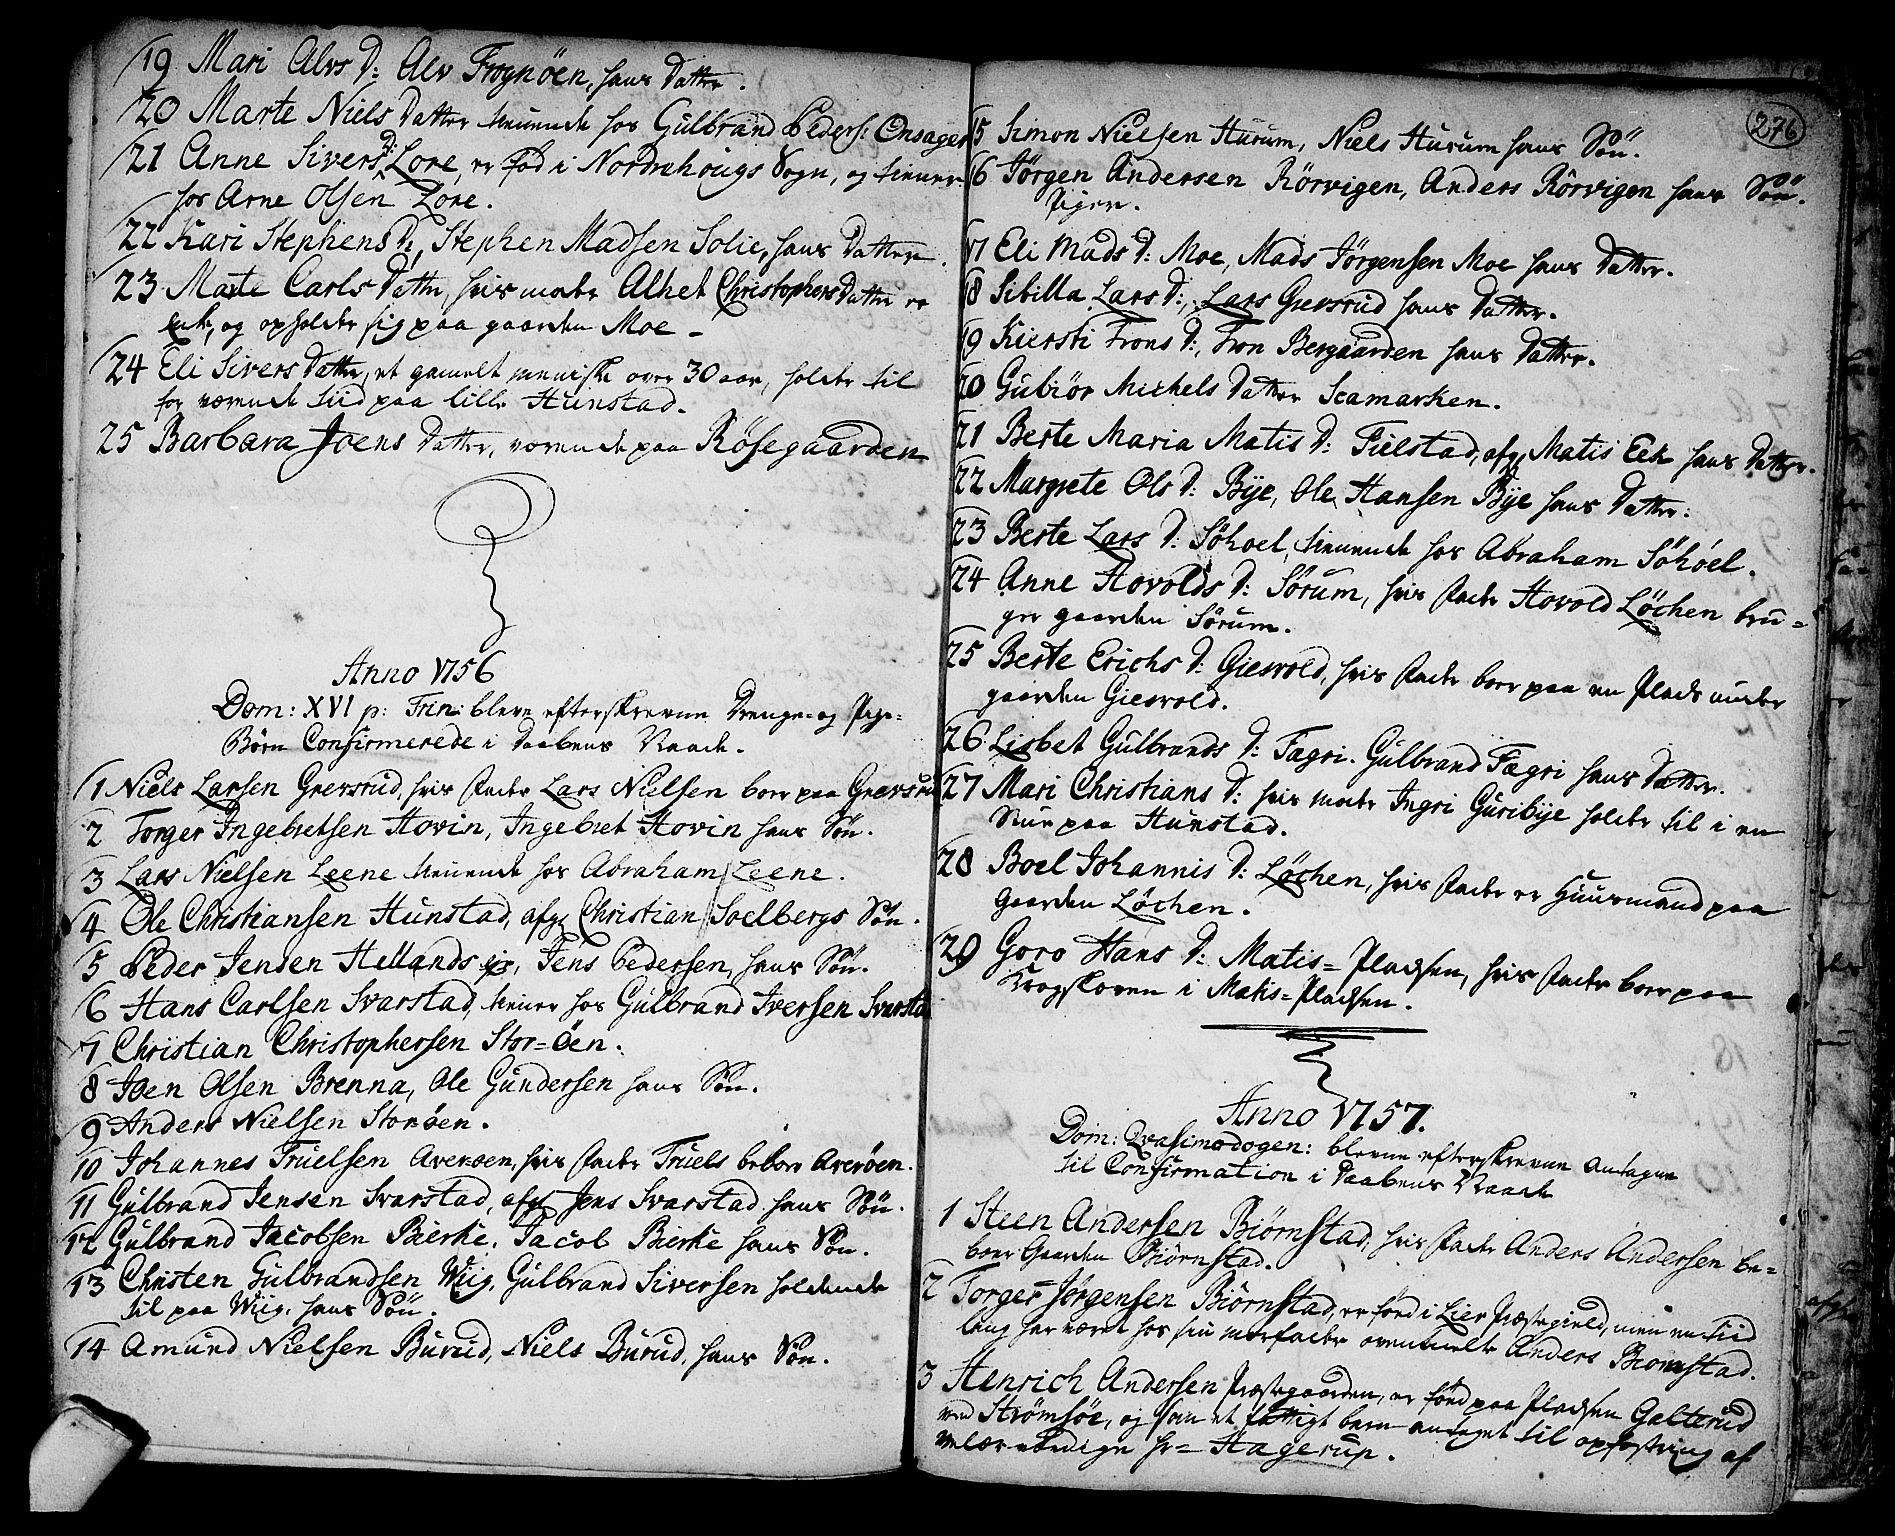 19 Mari Alvs D: Alv Frognöen, hans Datter.
20 Marte Niels Datter tienende hos Gulbrand Peders: Onsager
21 Anne Sivers D: Lore, er fød i Nordrehougs Sogn, og tiener
hos Arne Olsen Lore.
22 Kari Stephens D:, Stephen Madsen Solie, hans Datter.
23 Marte Carls Datter, hvis moder Alhet Christophers Datter er
Enke, og opholder sig paa gaarden Moe -
24 Eli Sivers Datter, et gamelt menniske over 30 aar, holder til
for nærvende tiid paa lille Hunstad.
25 Barbara Joens Datter, værende paa Røsegaarden
Anno 1756
Dom: XVI p: Trin: bleve efterskrevne Drenge- og Pige-
Børn Confirmerede i Daabens Naade.
1 Niels Larsen Grevsrud, hvis Fader Lars Nielsen boer paa Grevsrud
2 Torger Ingebretsen Hovin, Ingebret Hovin hans Søn.
3 Lars Nielsen Leene tienende hos Abraham Leene.
4 Ole Christiansen Hunstad, afg. Christian Soelbergs Søn.
5 Peder Jensen Hellands eje, Jens Pedersen, hans Søn.
6 Hans Carlsen Svarstad, tiener hos Gulbrand Iversen Svarstad
7 Christian Christophersen Stor-öen.
8 Joen Olsen Brenna, Ole Gundersen hans Søn.
9 Anders Nielsen Storøen.
10 Johannes Truelsen Averøen, hvis Fader Truels beboer Averöen.
11 Gulbrand Jensen Svarstad, afg. Jens Svarstad hans Søn.
12 Gulbrand Jacobsen Bierke, Jacob Bierke hans Søn.
13 Christen Gulbrandsen Wiig, Gulbrand Siversen holdende
til paa Wiig, hans Søn.
14 Amund Nielsen Burud, Niels Burud, hans Søn.
276
15 Simon Nielsen Hurum, Niels Hurum hans Søn.
16 Jörgen Andersen Rörvigen, Anders Rörvigen hans Søn.
Piger.
17 Eli Mads D: Moe, Mads Jörgensen Moe hans Datter.
18 Sibilla Lars D:, Lars Grevsrud hans Datter.
19 Kiersti Trons D:, Tron Bergaarden hans Datter.
20 Gubiör Michels Datter Scamarken.
21 Berte Maria Matis D: Fielstad, afg. Matis Eek hans Datter.
22 Margrete Ols D: Bye, Ole Hansen Bye hans Datter.
23 Berte Lars D: Söhoel, tienende hos Abraham Söhoel.
24 Anne Hovolds D: Sørum, hvis Fader Hovold Löchen bru-
ger gaarden Sørum.
25 Berte Erichs D: Gjesvold, hvis Fader boer paa en Plads under
gaarden Giesvold.
26 Lisbet Gulbrands D: Fægri. Gulbrand Fægri hans Datter.
27 Mari Christians D: hvis moder Ingri Guribye holder til i en
Stue paa Hunstad.
28 Boel Johannis D: Löchen, hvis Fader er Huusmand paa
Gaarden Löchen.
29 Goro Hans D: Matis-Pladsen, hvis Fader boer paa
Krogskoven i Matis-Pladsen.
Anno 1757.
Dom: Qvasimodogen: blevne efterskrevne antagne
til Confirmation i Daabens Naade
1 Steen Andersen Biørnstad, hvis Fader Anders Andersen be-
boer Gaarden Biørnstad.
2 Torger Jørgensen Biørnstad, er fød i Lier Præstegield, men en tiid
lang har været hos sin morfader ovenmelte Anders Biornstad.
3 Henrich Andersen Præstegaarden, er fød paa Pladsen Galterud
ved Strømsöe, og som et fattigt barn antaget til opfostring af
velærværdige hr= Hagerup.